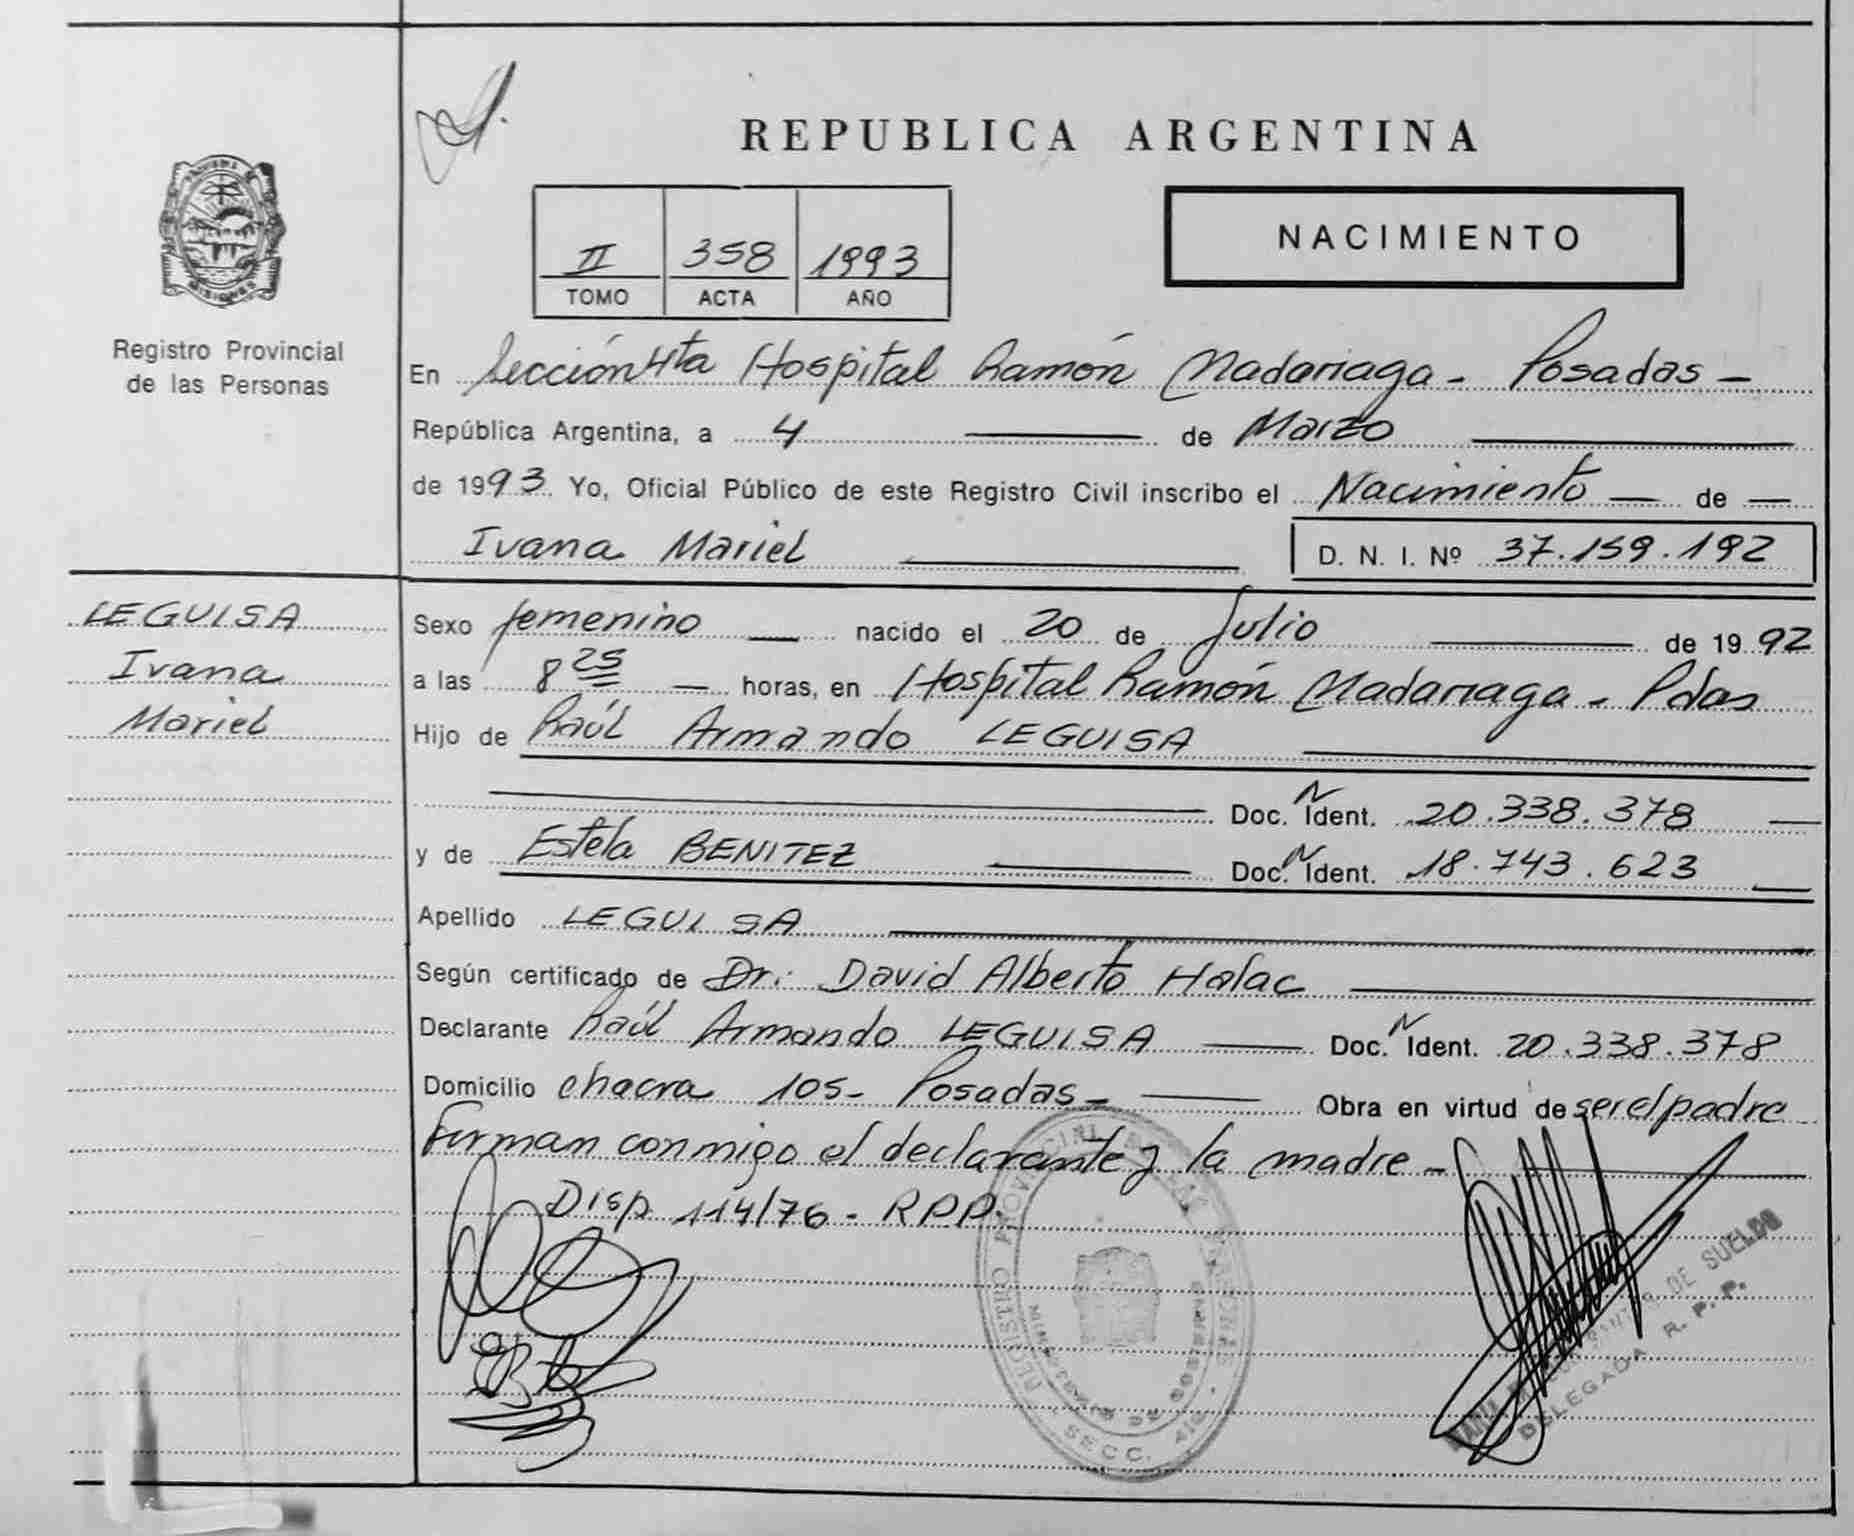 REPUBLICA ARGENTINA
NACIMIENTO
II 358 1993
TOMO ACTA AÑO
MISIONES
Registro Provincial
de las Personas
En Sección 4ta Hospital Ramón Madariaga - Posadas -
República Argentina, a 4 de Marzo
de 1993. Yo, Oficial Público de este Registro Civil inscribo el Nacimiento de
Ivana Mariel D. N. I. Nº 37.159.192
LEGUISA
Ivana
Mariel
Sexo femenino nacido el 20 de Julio de 1992
a las 8 25 horas, en Hospital Ramón Madariaga - Pdas
Hijo de Raúl Armando LEGUISA
Doc. N Ident. 20.338.378
y de Estela BENITEZ Doc. N Ident. 18.743.623
Apellido LEGUISA
Según certificado de Dr. David Alberto Halac
Declarante Raúl Armando LEGUISA Doc. N Ident. 20.338.378
Domicilio chacra 105- Posadas- Obra en virtud de ser el padre
Firman conmigo el declarante y la madre -
Disp 114/76 - RPP.
REGISTRO PROVINCIAL DE LAS PERSONAS
MINISTERIO DE GOBIERNO
SECC. 4ta
DE SUELDO
DELEGADA R. P. P.